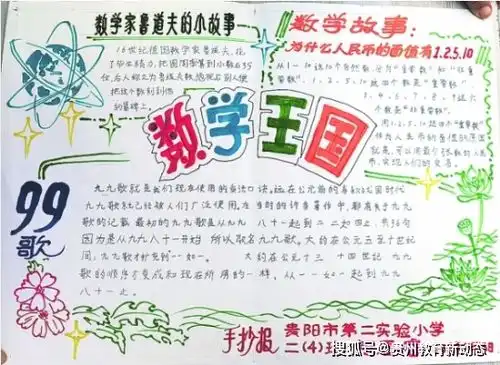 数学家鲁道夫的小故事
16世纪德国数学家鲁道夫，花
了毕生精力，把圆周率算到小数后35
位，后人称之为鲁道夫数，他死后别人便
把这个数刻到他
的墓碑上。
数学故事：
为什么人民币的面值有1.2.5.10
从1—10这10个自然数，分为“重要数”和“非重
要数”，1、2、5、10这四个数是“重要数”
3、4、6、7、8、9这六
个数是“非重要数”
用1、2、5、10这四个“重要数”
作为人民币的面值的原因
就是，可以用最少张数的人民
币，实现人们的交易。
数学王国
99
歌
九九歌就是我们现在使用的乘法口诀，远在公元前的春秋战国时代
九九歌就已经被人们广泛使用。在当时的许多著作中，都有关于九九
歌的记载。最初的九九歌是从九九八十一起到二二如四止，共36句
因为是从九九八十一开始，所以取名九九歌。大约在公元五至十世纪
间，九九歌才扩充到一一如一。大约在公元十三、十四世纪，九九
歌的顺序才变成和现在所用的一样，从一一如一起到九九
八十一止。
手抄报
贵阳市第二实验小学
二(4)班
搜狐号@贵州教育新动态